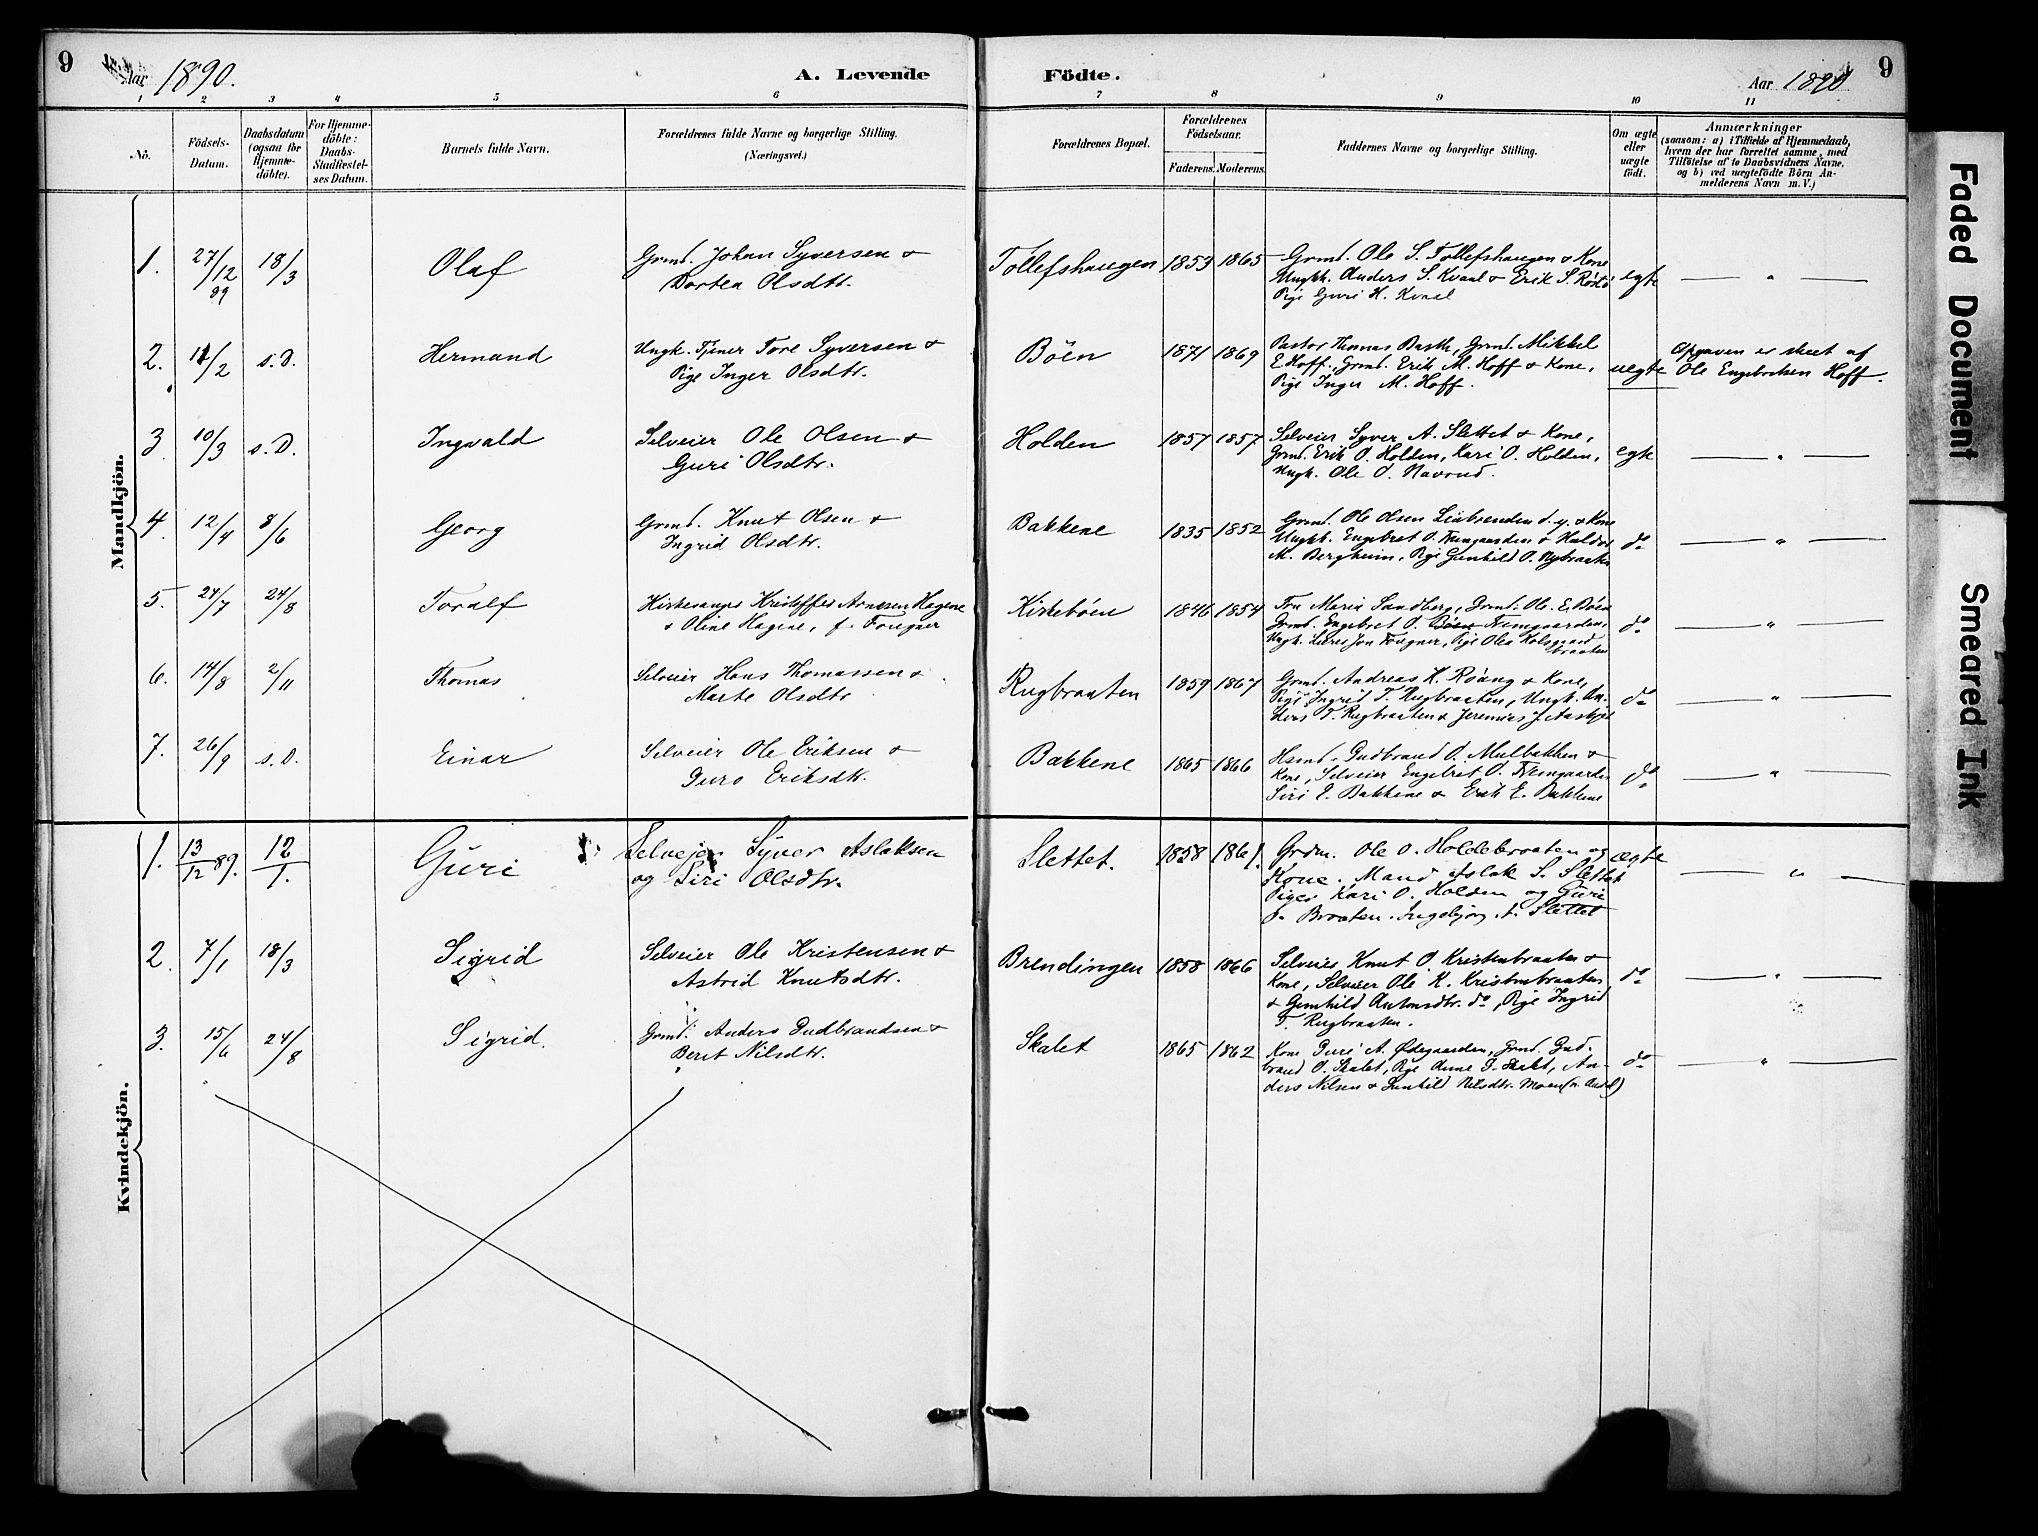 9
Aar 1890.
A. Levende
Födte.
Aar 1890
9
1 2 3 4 5 6 7 8 9 10 11
No.
Födsels-Datum.
Daabsdatum (ogsaa for Hjemme-döbte).
For Hjemme-döbte: Daabs-Stadfæstel-ses Datum.
Barnets fulde Navn.
Forældrenes fulde Navne og borgerlige Stilling.
(Næringsvei.)
Forældrenes Bopæl.
Forældrenes Födselsaar.
Faderens. Moderens.
Faddernes Navne og borgerlige Stilling.
Om ægte eller uægte födt.
Anmærkninger
(saasom: a) i Tilfælde af Hjemmedaab, hvem der har forrettet samme, med Tilföielse af to Daabsvidners Navne, og b) ved uægtefödte Börn An-melderens Navn m. V.)
Mandkjön.
1. 27/12 89 18/3 Olaf Grmd. Johan Syversen & Dortea Olsdtr. Tollefshaugen 1853 1865 Grmd. Ole S. Tollefshaugen & Kone
Ungk. Anders S. Kvaal & Erik S.
Pige Guri H. Kvaal egte — " —
2. 11/2 s. D. Hermand Ungk. Tjener Tore Syversen & Pige Inger Olsdtr. Böen 1871 1869 Pastor Thomas Barth, Grmd. Mikkel
E. Hoff, Grmd. Erik M. Hoff & Kone,
Pige Inger M. Hoff. uegte Opgaven er skeet af
Ole Engebretsen Hoff.
3. 10/3 s. D. Ingvald Selveier Ole Olsen & Guri Olsdtr. Holden 1857 1857 Selveier Syver A. Slettet & Kone,
Grmd. Erik O. Holden, Kari O. Holden,
Ungk. Ole O. Havrud. egte — " —
4. 12/4 8/6 Georg Grmd. Knut Olsen & Ingrid Olsdtr. Bakkene 1835 1852 Grmd. Ole Olsen d. y. & Kone
Ungkk. Engebret O. & Halvor
M. Bergheim, Pige Gunhild O. do — " —
5. 24/7 24/8 Toralf Kirkesanger Kristoffer Arnesen Hagene & Oline Hagene, f. Fougner Kirkeböen 1846 1854 Fru Maria Sandberg, Grmd. Ole E. Böen
Grmd. Engebret O. Böen
Ungk. Lars Jon Fougner, Pige Olea do — " —
6. 14/8 2/11 Thomas Selveier Hans Thomassen & Marte Olsdtr Rugbraaten 1859 1867 Grmd. Andreas K. & Kone,
Pige Ingrid T. Rugbraaten, Ungk. An-
ders T. Rugbraaten & Jeremias J. do — " —
7. 26/9 s. D. Einar Selveier Ole Eriksen & Guro Eriksdtr. Bakkene 1865 1866 Hsmd. Gudbrand O. Mulbakken &
Kone, Selveier Engebret O.
Siri E. Bakkene & Erik E. Bakkene do — " —
Kvindekjön.
1. 13/12 89. 12/1. Guri Selvejer Syver Aslaksen og Siri Olsdtr. Slettet. 1858 1861. Grdm. Ole O. Holdebraaten og
Kone. Mand Aslak S. Slettet
Piger Kari O. Holden og Guri
Braaten. Ingebjörg Slettet ægte — " —
2. 7/1 18/3 Sigrid Selveier Ole Kristensen & Astrid Knutsdtr. Brendingen 1858 1866 Selveier Knut O. Kristenbraaten &
Kone, Selveier Ole K. Kristenbraaten
& Gunhild Antonsdtr. do, Pige Ingrid
T. Rugbraaten. do — " —
3. 15/6 24/8 Sigrid. Grmd. Anders Gudbrandsen & Berit Nilsdtr. Skalet 1865 1862 Kone Guri A. Ødegaarden, Grmd. Gud-
brand O. Skalet, Pige Anne G. Skalet, An-
ders Nilsen & Gunhild Nilsdtr. Moen do — " —
Faded Document
Smeared Ink